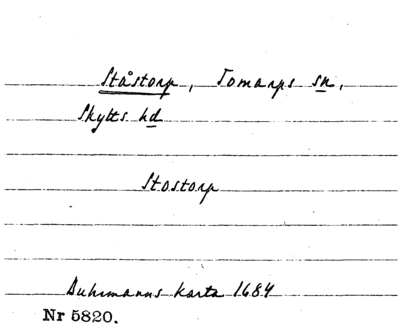 Ståstorp, Tomarps sn,
Skytts hd
Stostorp
Buhrmanns karta 1684
Nr 5820.